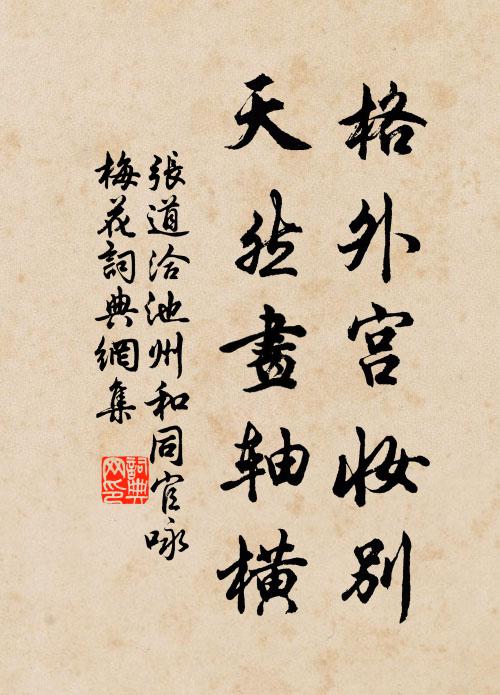 格外宫妆别
天然畫轴横
張道洽池州和同官咏
梅花詞典網集
詞典
网印